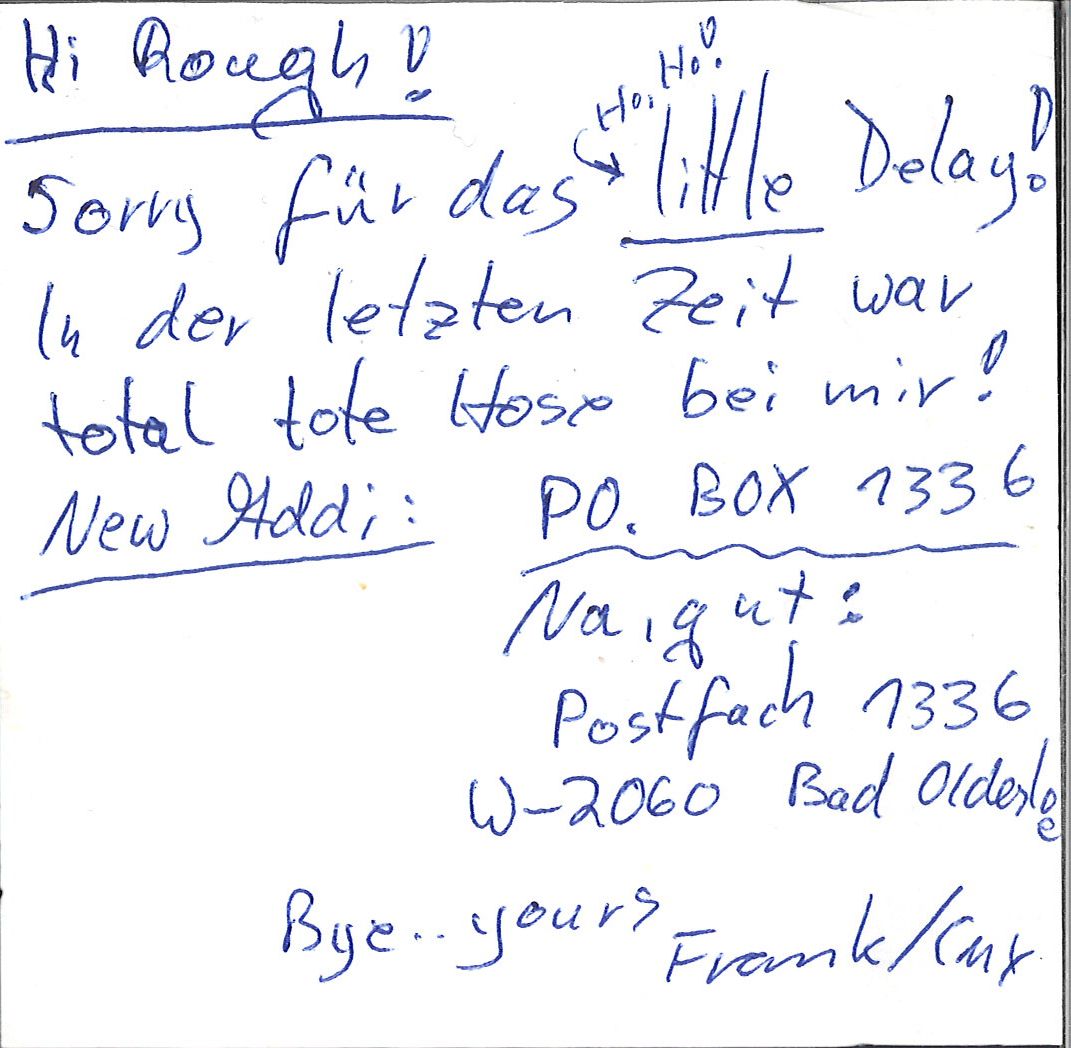 Hi Rough!
Ho, Ho!
Sorry für das little Delay!
In der letzten Zeit war
total tote Hose bei mir!
New Addi: PO. BOX 1336
Na, gut:
Postfach 1336
W-2060 Bad Oldesloe
Bye.. yours Frank/Cmx